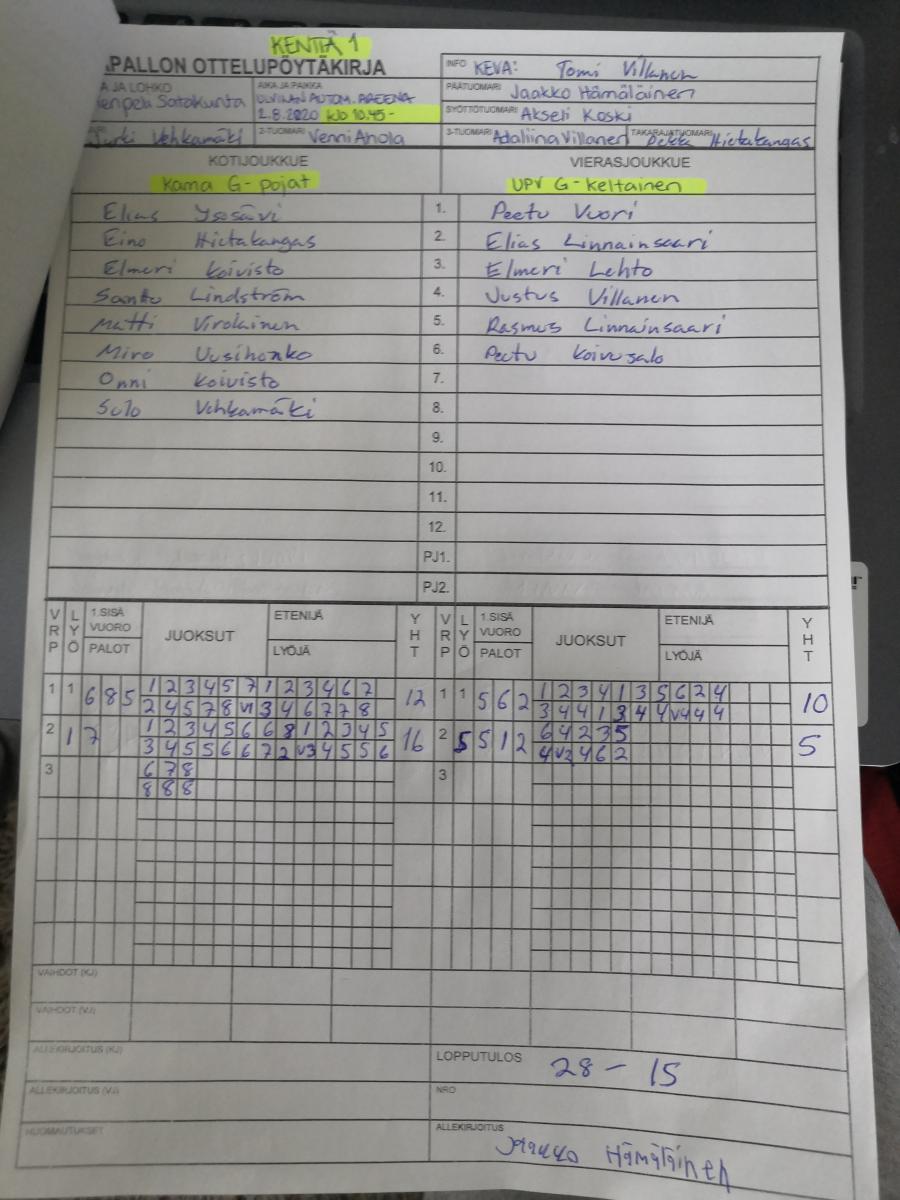 KENTTÄ 1
PALLON OTTELUPÖYTÄKIRJA
INFO KEVA: Tomi Villanen
AJA LOHKO
AIKA JA PAIKKA
PÄÄTUOMARI Jaakko Hämäläinen
Satakunta
ULVILAN AUTOM. AREENA
2.8.2020 klo 10.45-
SYÖTTÖTUOMARI Akseli Koski
Vehkamäki
2-TUOMARI Venni Ahola
3-TUOMARI Adaliina Villanen
TAKARAJATUOMARI Pekka Hietakangas
KOTIJOUKKUE VIERASJOUKKUE
Kama G-pojat UPV G-keltainen
Elias Ysosävi 1. Peetu Vuori
Eino Hietakangas 2. Elias Linnainsaari
Elmeri Koivisto 3. Elmeri Lehto
Santtu Lindström 4. Justus Villanen
Matti Virolainen 5. Rasmus Linnainsaari
Miro Uusihonko 6. Peetu Koivusalo
Onni Koivisto 7.
Sulo Vehkamäki 8.
9.
10.
11.
12.
PJ1.
PJ2.
VRP LYÖ 1.SISÄ VUORO PALOT JUOKSUT ETENIJÄ LYÖJÄ YHT VRP LYÖ 1.SISÄ VUORO PALOT JUOKSUT ETENIJÄ LYÖJÄ YHT
1 1 6 8 5 1 2 3 4 5 7 1 2 3 4 6 7 12 1 1 5 6 2 1 2 3 4 1 3 5 6 2 4 10
2 4 5 7 8 V1 3 4 6 7 7 8 3 4 4 1 3 4 4 V4 4 4
2 1 7 1 2 3 4 5 6 6 8 1 2 3 4 5 16 2 5 5 1 2 6 4 2 3 5 5
3 4 5 5 6 6 7 2 V3 4 5 5 6 4 V2 4 6 2
3 6 7 8 3
8 8 8
VAIHDOT (KJ)
VAIHDOT (VJ)
ALLEKIRJOITUS (KJ)
LOPPUTULOS 28 - 15
ALLEKIRJOITUS (VJ)
NRO
HUOMAUTUKSET
ALLEKIRJOITUS
Jaakko Hämäläinen